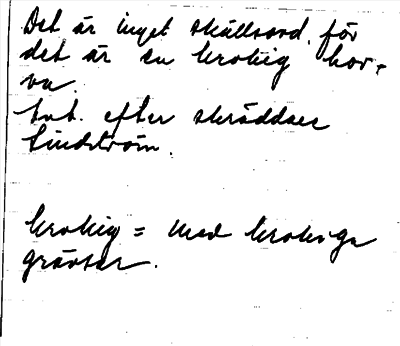 Det är inget skällsord. för
det är en krokig kor-
va.
Ant. efter skräddare
Lindström.
krokig = med krokiga
grävsar.